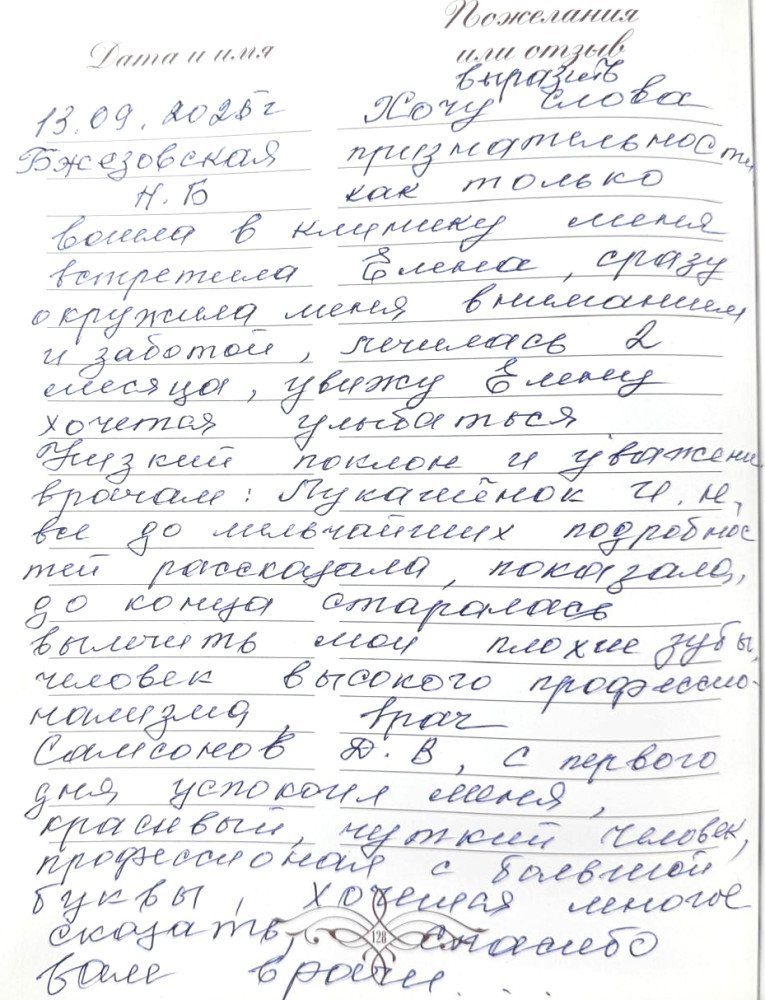 Дата и имя
Пожелания
или отзыв
выразить
13.09.2025г Хочу слова
Бжезовская признательности,
Н.Б как только
вошла в клинику меня
встретила Елена, сразу
окружила меня вниманием
и заботой, лечилась 2
месяца, увижу Елену
хочется улыбаться
Низкий поклон и уважени
врачам: Лукашёнок И.Н,
все до мельчайших подробнос
тей рассказала, показала,
до конца старалась
вылечить мои плохие зубы,
человек высокого профессио-
нализма, врач
Самсонов Д.В, с первого
дня успокоил меня,
красивый, чуткий человек,
профессионал с большой
буквы, хочется многое
сказать, спасибо
128
вам врачи....